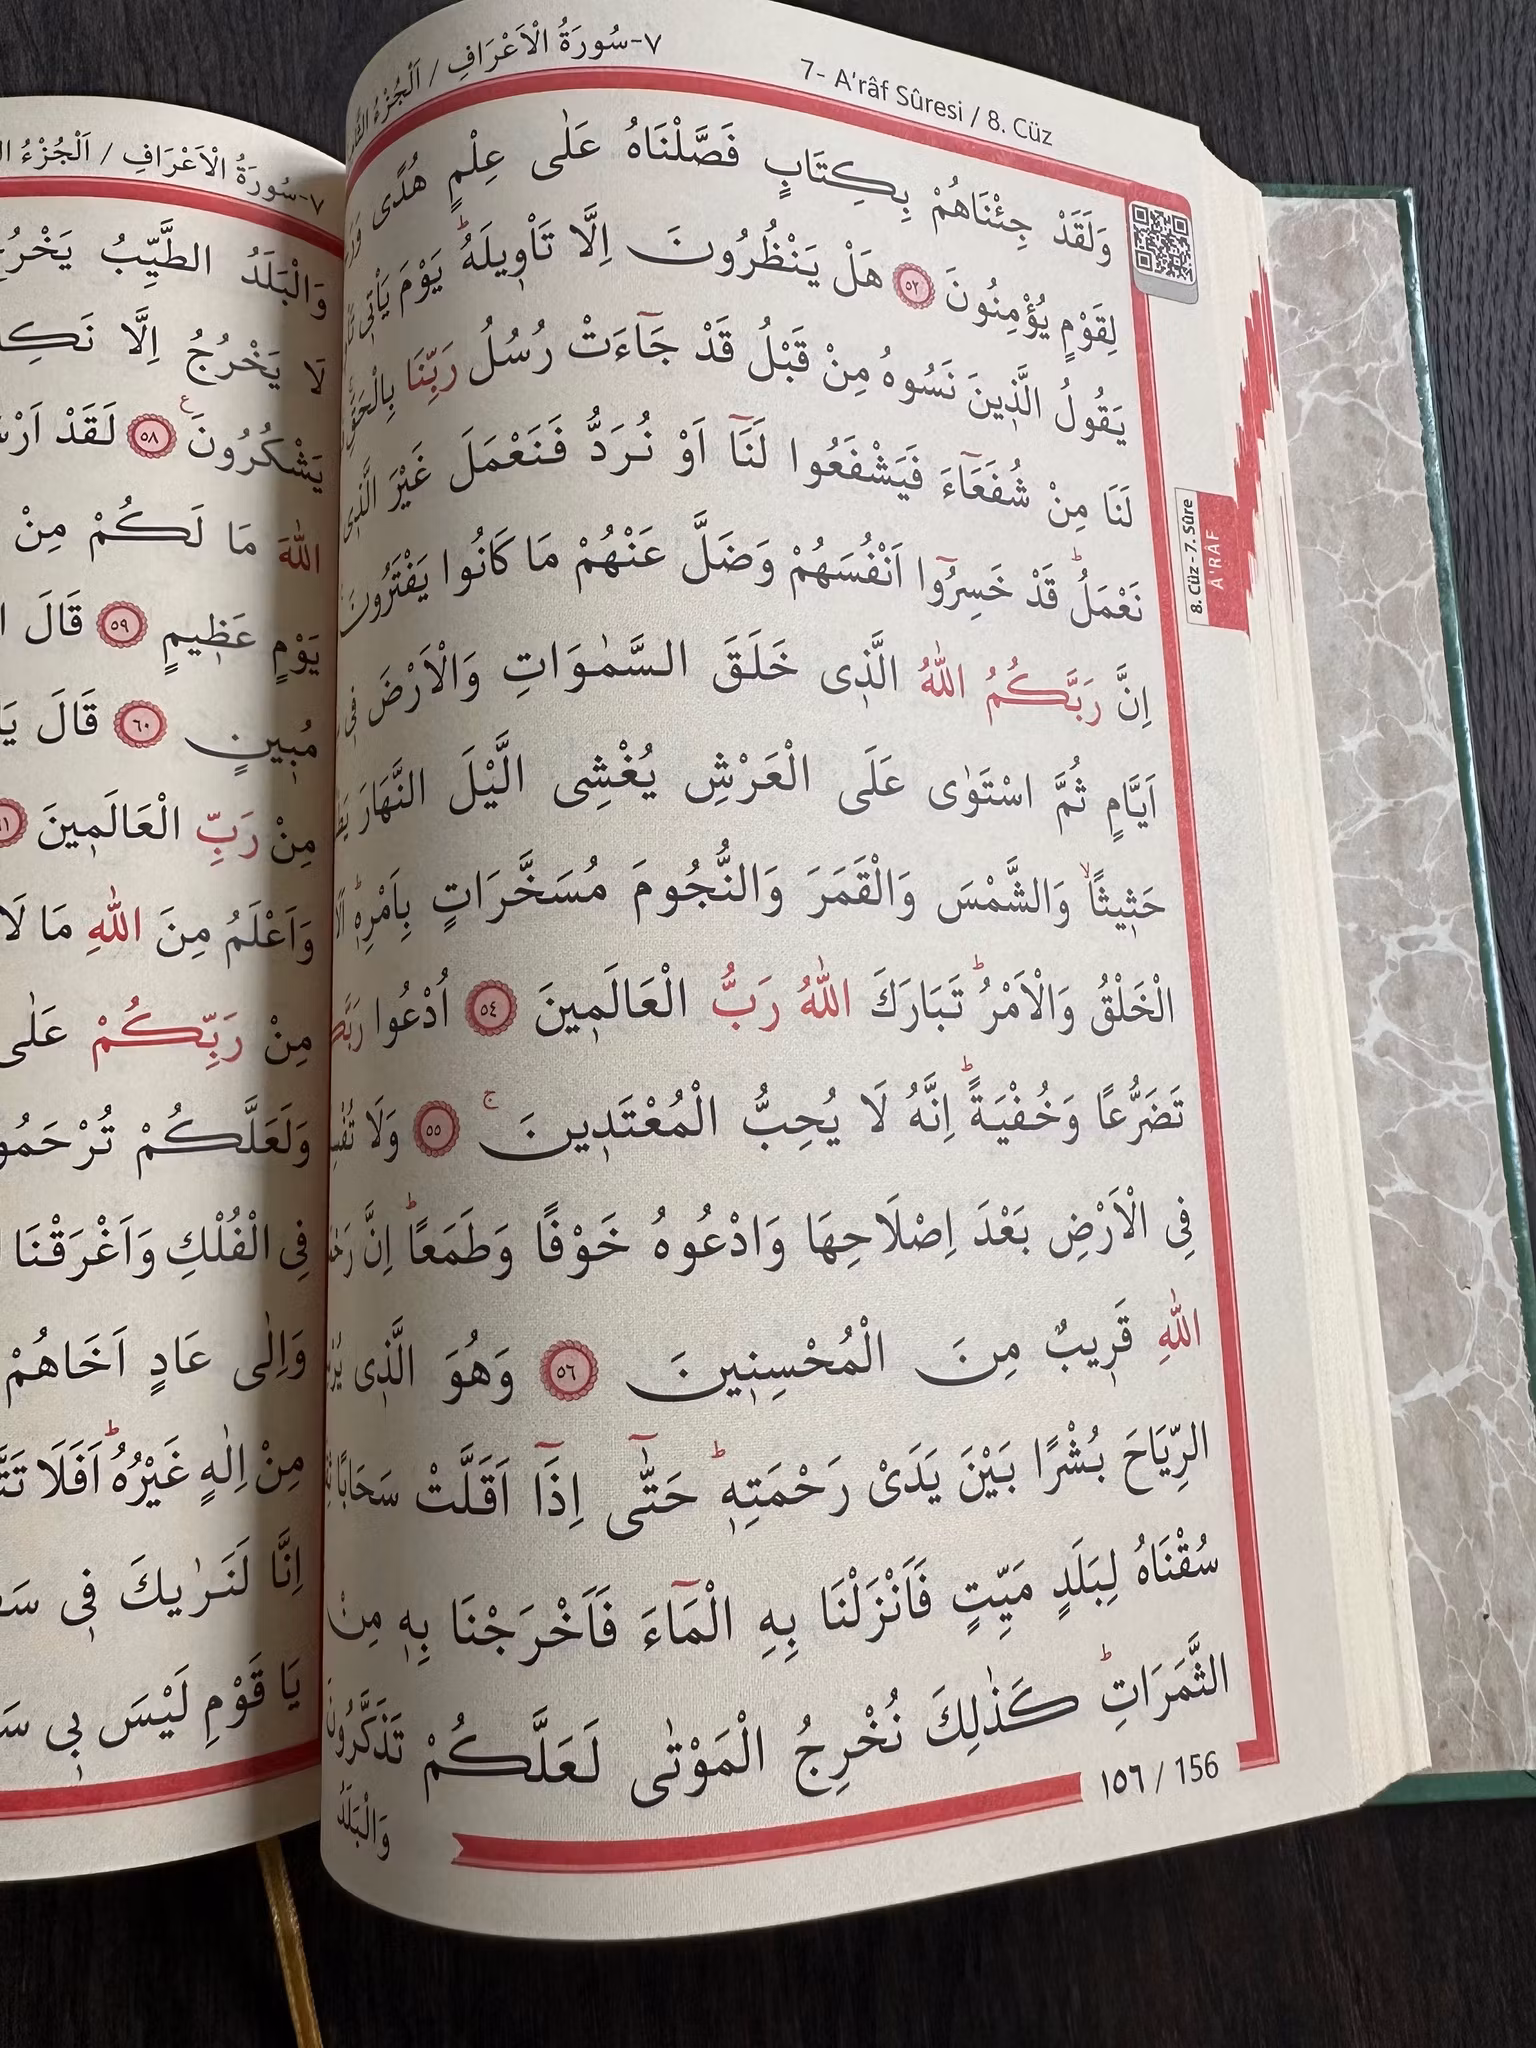 ٧-سُورَةُ الْاَعْرَافِ / اَلْجُزْءُ
7- A'râf Sûresi / 8. Cüz
وَلَقَدْ جِئْنَاهُمْ بِكِتَابٍ فَصَّلْنَاهُ عَلٰى عِلْمٍ هُدًى
لِقَوْمٍ يُؤْمِنُونَ ٥٢ هَلْ يَنْظُرُونَ اِلَّا تَأْوٖيلَهُؕ يَوْمَ يَأْتٖى
يَقُولُ الَّذٖينَ نَسُوهُ مِنْ قَبْلُ قَدْ جَٓاءَتْ رُسُلُ رَبِّنَا بِالْحَقِّ
لَنَا مِنْ شُفَعَٓاءَ فَيَشْفَعُوا لَنَٓا اَوْ نُرَدُّ فَنَعْمَلَ غَيْرَ الَّذٖى
نَعْمَلُؕ قَدْ خَسِرُٓوا اَنْفُسَهُمْ وَضَلَّ عَنْهُمْ مَا كَانُوا يَفْتَرُونَ
اِنَّ رَبَّكُمُ اللّٰهُ الَّذٖى خَلَقَ السَّمٰوَاتِ وَالْاَرْضَ فٖى
اَيَّامٍ ثُمَّ اسْتَوٰى عَلَى الْعَرْشِ يُغْشِى الَّيْلَ النَّهَارَ
حَثٖيثًاۙ وَالشَّمْسَ وَالْقَمَرَ وَالنُّجُومَ مُسَخَّرَاتٍ بِاَمْرِهٖؕ
الْخَلْقُ وَالْاَمْرُؕ تَبَارَكَ اللّٰهُ رَبُّ الْعَالَمٖينَ ٥٤ اُدْعُوا
تَضَرُّعًا وَخُفْيَةًؕ اِنَّهُ لَا يُحِبُّ الْمُعْتَدٖينَۚ ٥٥ وَلَا
فِى الْاَرْضِ بَعْدَ اِصْلَاحِهَا وَادْعُوهُ خَوْفًا وَطَمَعًاؕ اِنَّ
اللّٰهِ قَرٖيبٌ مِنَ الْمُحْسِنٖينَ ٥٦ وَهُوَ الَّذٖى
الرِّيَاحَ بُشْرًا بَيْنَ يَدَىْ رَحْمَتِهٖؕ حَتّٰٓى اِذَٓا اَقَلَّتْ سَحَابًا
سُقْنَاهُ لِبَلَدٍ مَيِّتٍ فَاَنْزَلْنَا بِهِ الْمَٓاءَ فَاَخْرَجْنَا بِهٖ مِنْ
الثَّمَرَاتِؕ كَذٰلِكَ نُخْرِجُ الْمَوْتٰى لَعَلَّكُمْ تَذَكَّرُونَ
وَالْبَلَدُ
١٥٦ / 156
8. Cüz - 7. Sûre
A'RÂF
٧-سُورَةُ الْاَعْرَافِ / اَلْجُزْءُ
وَالْبَلَدُ الطَّيِّبُ
لَا يَخْرُجُ اِلَّا
يَشْكُرُونَࣖ ٥٨ لَقَدْ
اللّٰهَ مَا لَكُمْ مِنْ
يَوْمٍ عَظٖيمٍ ٥٩ قَالَ
مُبٖينٍ ٦٠ قَالَ
مِنْ رَبِّ الْعَالَمٖينَ
وَاَعْلَمُ مِنَ اللّٰهِ مَا
مِنْ رَبِّكُمْ عَلٰى
وَلَعَلَّكُمْ
فِى الْفُلْكِ وَاَغْرَقْنَا
وَاِلٰى عَادٍ اَخَاهُمْ
مِنْ اِلٰهٍ غَيْرُهُؕ اَفَلَا
اِنَّا لَنَرٰيكَ فٖى
يَا قَوْمِ لَيْسَ بٖى